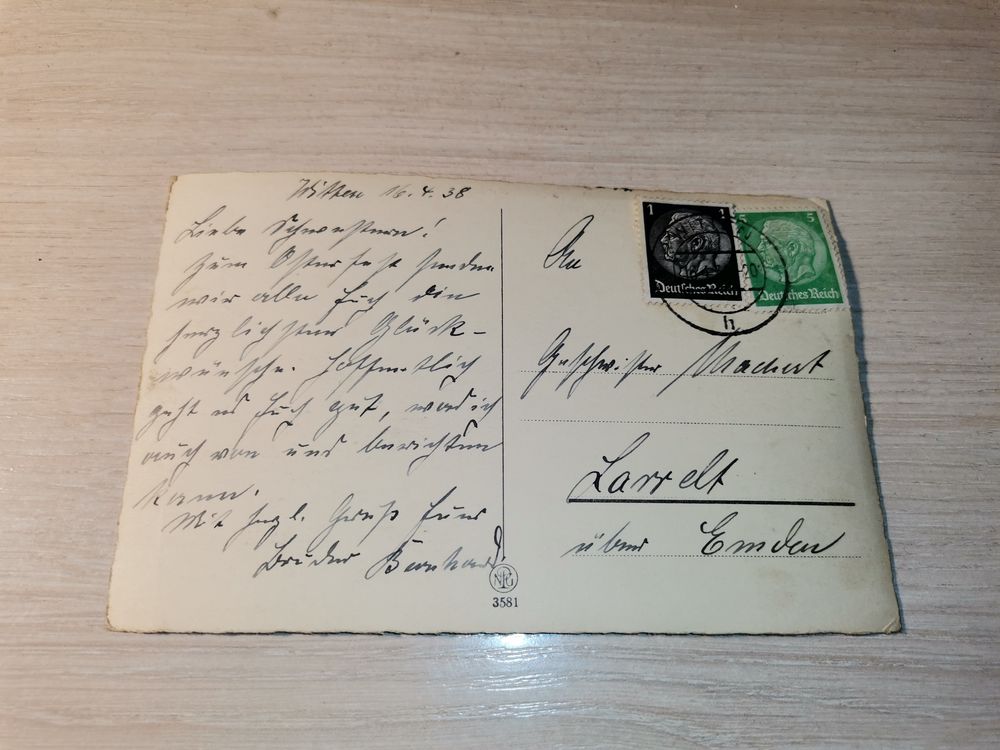 Witten 16.4.38
Liebe Schwestern!
zum Osterfest senden
wir alle Euch die
herzlichsten Glück-
wünsche. Hoffentlich
geht es Euch gut, was ich
auch von uns berichten
kann.
Mit herzl. Gruß Euer
Bruder Bernhard.
An
Geschwister
Larrelt
über Emden
1 1
Deutsches Reich
5 5
Deutsches Reich
h
NPG
3581